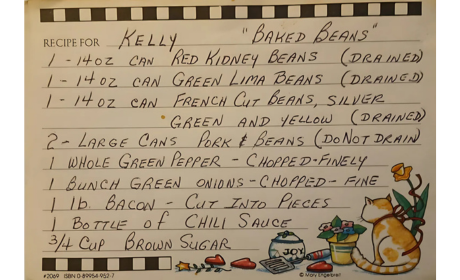 RECIPE FOR KELLY "BAKED BEANS"
1 - 14 oz CAN RED KIDNEY BEANS (DRAINED)
1 - 14 oz CAN GREEN LIMA BEANS (DRAINED)
1 - 14 oz CAN FRENCH CUT BEANS, SILVER
GREEN AND YELLOW (DRAINED)
2 - LARGE CANS PORK & BEANS (DO NOT DRAIN)
1 WHOLE GREEN PEPPER - CHOPPED - FINELY
1 BUNCH GREEN ONIONS - CHOPPED - FINE
1 lb. BACON - CUT INTO PIECES
1 BOTTLE OF CHILI SAUCE
3/4 CUP BROWN SUGAR
JOY
#2069 ISBN 0-89954-952-7
© Mary Engelbreit